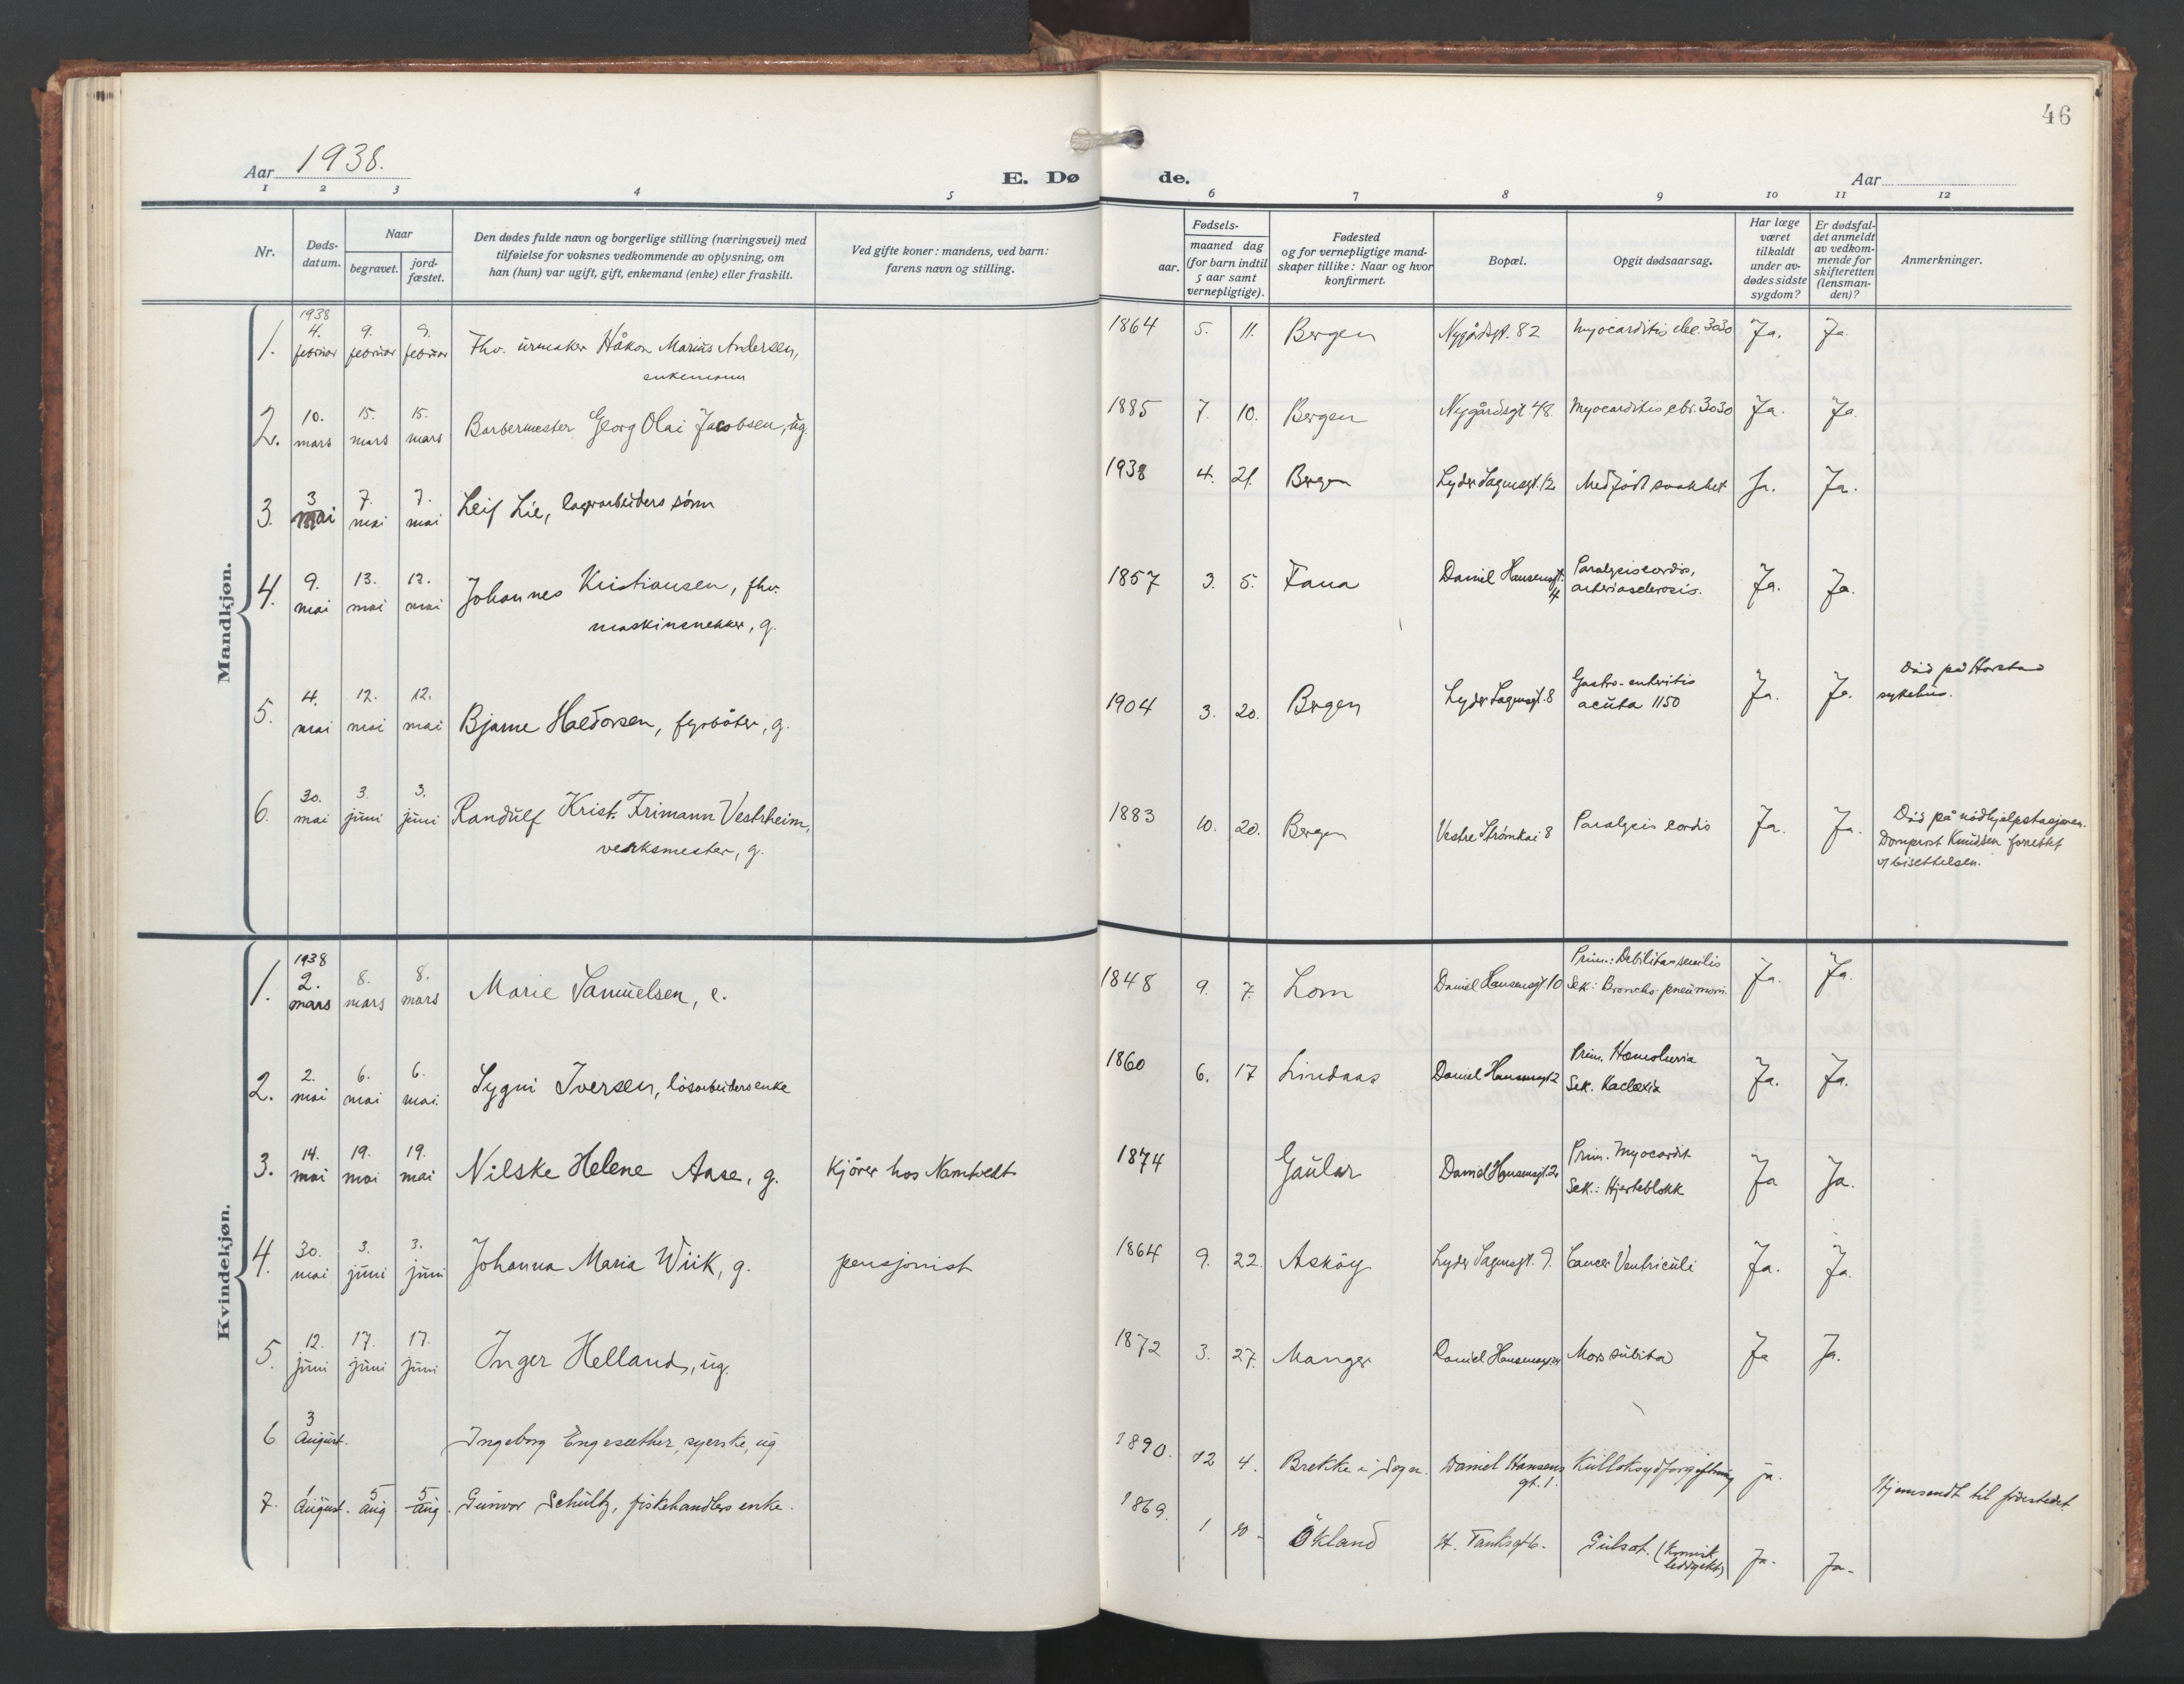 46
Aar 1938.
E. Dø de.
Aar
1 2 3 4 5 6 7 8 9 10 11 12
Nr.
Døds-
datum.
Naar
begravet.
jord-
fæstet.
Den dødes fulde navn og borgerlige stilling (næringsvei) med
tilføielse for voksnes vedkommende av oplysning, om
han (hun) var ugift, gift, enkemand (enke) eller fraskilt.
Ved gifte koner: mandens, ved barn:
farens navn og stilling.
Fødsels-
aar.
maaned dag
(for barn indtil
5 aar samt
vernepligtige).
Fødested
og for vernepligtige mand-
skaper tillike: Naar og hvor
konfirmert.
Bopæl.
Opgit dødsaarsag.
Har læge
været
tilkaldt
under av-
dødes sidste
sygdom?
Er dødsfal-
det anmeldt
av vedkom-
mende for
skifteretten
(lensman-
den)?
Anmerkninger.
Mandkjøn.
1. 1938 4. februar 9. februar 9. februar Fhv. urmaker Håkon Marius Andersen,
enkemann
1864 5. 11. Bergen Nygårdsgt. 82 Myocarditis chr. 3030 Ja. Ja
2. 10. mars 15. mars 15. mars Barbermester Georg Olai Jacobsen, ug.
1885 7. 10. Bergen Nygårdsgt. 48. Myocarditis chr. 3030 Ja. Ja
3. 3 mai 7. mai 7. mai Leif Lie, lagerarbeiders sønn
1938 4. 21. Bergen Lyder Sagensgt. 12 Medfødt svakhet Ja. Ja.
4. 9. mai 13. mai 13. mai Johannes Kristiansen, fhv.
maskinsnekker, g.
1857 3. 5. Fana Daniel Hansensgt. 4 Paralysis cordis,
arteriosclerosis. Ja. Ja.
5. 4. mai 12. mai 12. mai Bjarne Haldorsen, fyrbøter, g.
1904 3. 20. Bergen Lyder Sagensgt. 8 Gastro-enteritis
acuta 1150 Ja. Ja. Død på Harstad
sykehus.
6. 30. mai 3. juni 3. juni Randulf Krist. Frimann Vestrheim,
verksmester, g.
1883 10. 20. Bergen Vestre Strømkai 8 Paralysis cordis Ja. Ja. Død på nødhjelpstasjonen.
Domprost Knudsen forrettet
v/ bisettelsen.
Kvindekjøn.
1. 1938 2. mars 8. mars 8. mars Marie Samuelsen, e.
1848 9. 7. Lom Daniel Hansensgt. 10 Prim.: Debilitas senilis
Sek.: Broncho-pneumoni. Ja. Ja.
2. 2. mai 6. mai 6. mai. Sygni Iversen, løsarbeidersenke
1860 6. 17 Lindaas Daniel Hansensgt 2 Prim. Hæmaturia
Sek. Kachexia Ja. Ja.
3. 14. mai 19. mai 19. mai Nilske Helene Aase, g. Kjører hos Namtvedt
1874 Gaular Daniel Hansensgt. 2 Prim. Myocardit
Sek.: Hjerteblokk Ja Ja.
4. 30. mai 3. juni 3. juni Johanna Maria Wiik, g. pensjonist
1864 9. 22. Askøy Lyder Sagensgt. 9. Cancer Ventriculi Ja. Ja.
5. 12. juni 17. juni 17. juni Inger Helland, ug.
1872 3. 27. Manger Daniel Hansensgt Mors subita Ja Ja.
6. 3 August. Ingeborg Engesæther, syerske, ug.
1890. 12 4. Brekke i Sogn. Daniel Hansens
gt. 1. Kulloksydforgiftning ja. Hjemsendt til fødestedet
7. 1 August. 5 Aug. 5 Aug. Gunvor Schultz, fiskehandlers enke.
1869. 1 10. Økland H. Tanksgt 6. Gulsot. (Kronisk
leddgikt) Ja. Ja.